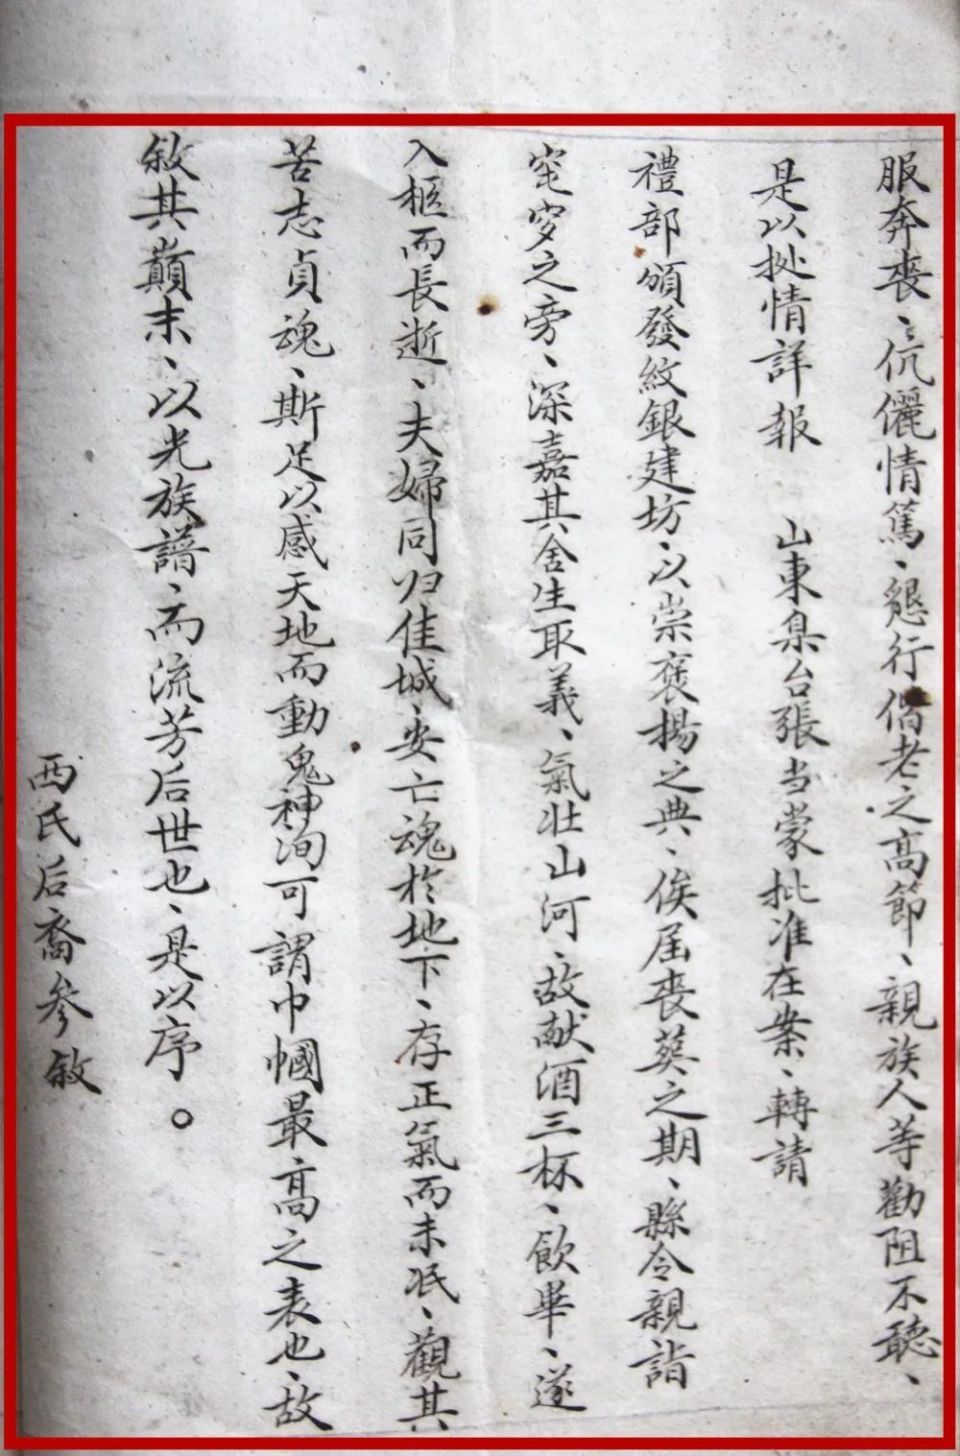 服奔喪、伉儷情篤、懇行偕老之高節、親族人等勸阻不聽、
是以抛情詳報 山東臬台張当蒙批准在案、轉請
禮部頒發紋銀建坊、以崇褒揚之典、俟届喪葬之期、縣令親詣
窀穸之旁、深嘉其舍生取義、氣壮山河、故献酒三杯、飲畢、遂
入柩而長逝、夫婦同归佳城、安亡魂於地下、存正氣而未泯、觀其
苦志貞魂、斯足以感天地而動鬼神洵可謂巾幗最高之表也、故
敘其巔末、以光族譜、而流芳后世也、是以序。
西氏后裔参敘